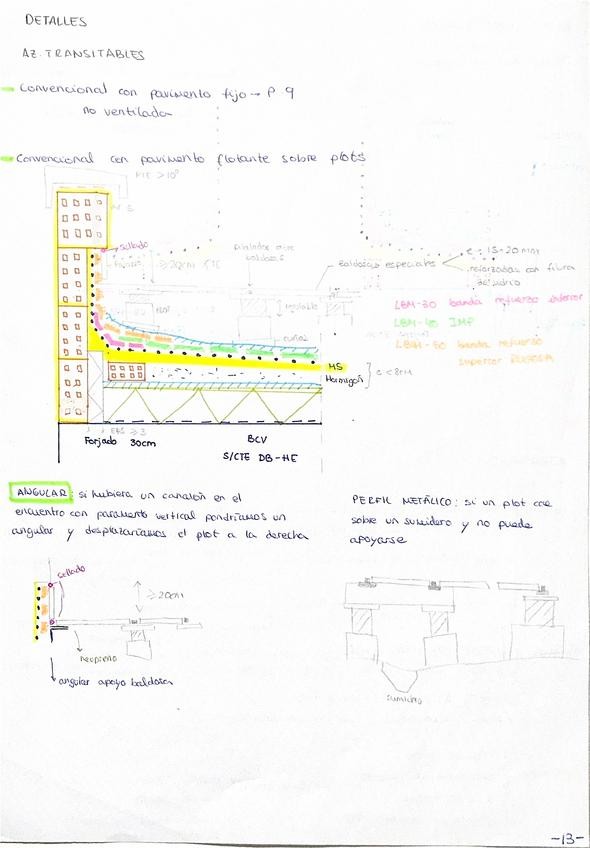 DETALLES
AZ. TRANSITABLES
Convencional con pavimento fijo → P 9
no ventilada
Convencional con pavimento flotante sobre plots
PTE > 10º
sellado
≥ 20cm CTE
baldosas especiales
e = 15-20 mm
reforzadas con fibra
de vidrio
regulable
LBM-30 banda refuerzo inferior
LBM-40 IMP
LBM-50 banda refuerzo
superior
MS
Hormigón
e < 8cm
Forjado 30cm
BCV
S/CTE DB-HE
ANGULAR: si hubiera un canalón en el
encuentro con paramento vertical pondríamos un
angular y desplazaríamos el plot a la derecha
PERFIL METÁLICO: si un plot cae
sobre un sumidero y no puede
apoyarse
sellado
≥ 20cm
neopreno
angular apoyo baldosa
sumidero
-13-